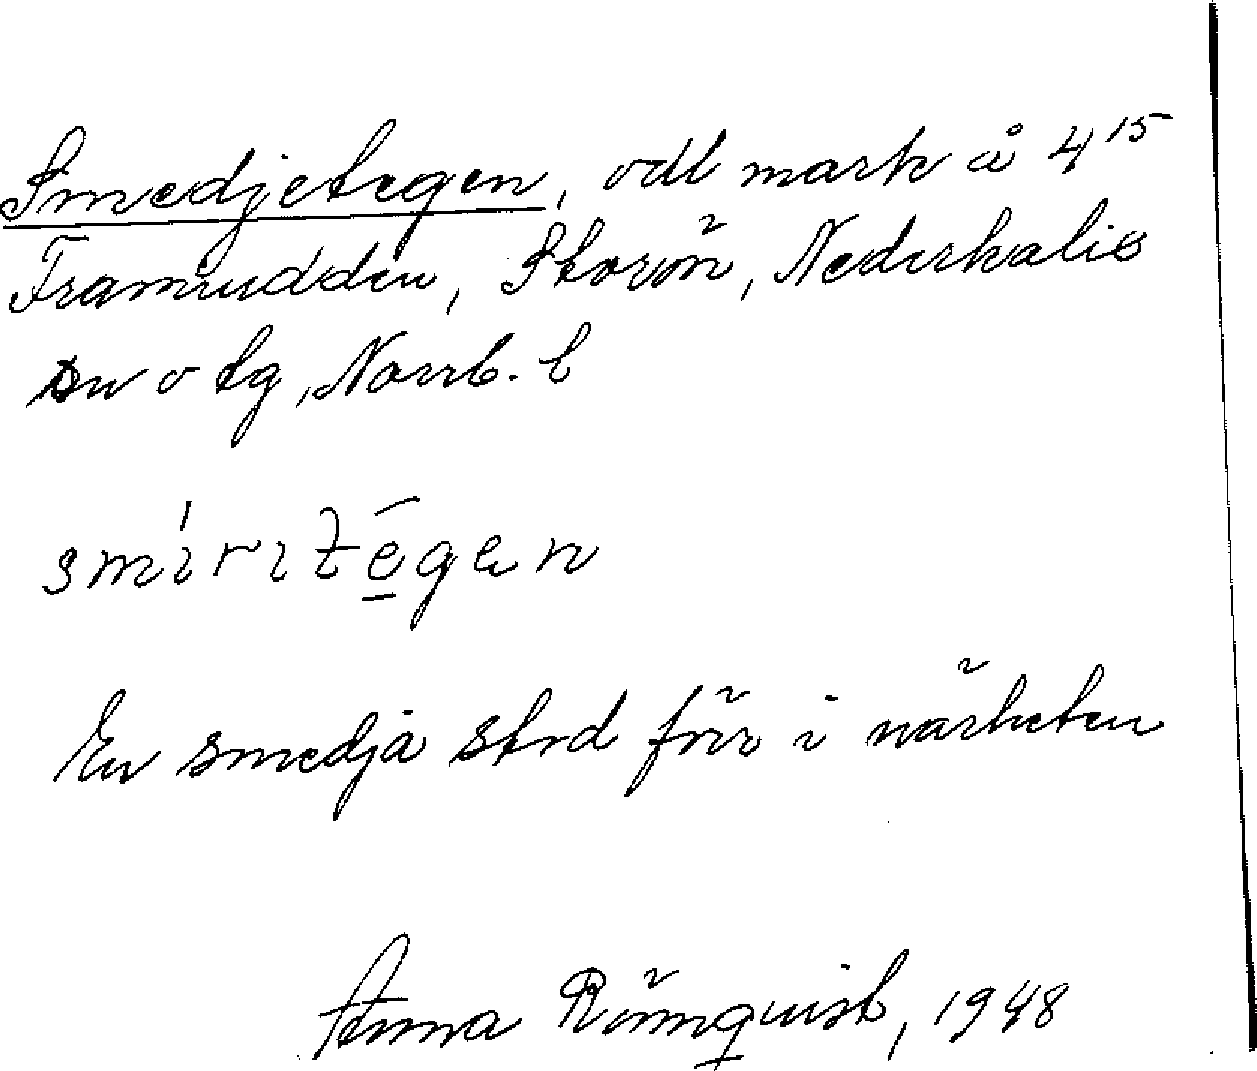 Smedjetegen, odl mark å 4¹⁵
Framrudden, Storön, Nederkalix
sn o tg, Norrb. l
smíritēgen
En smedja stod förr i närheten
Anna Rönnquist, 1948